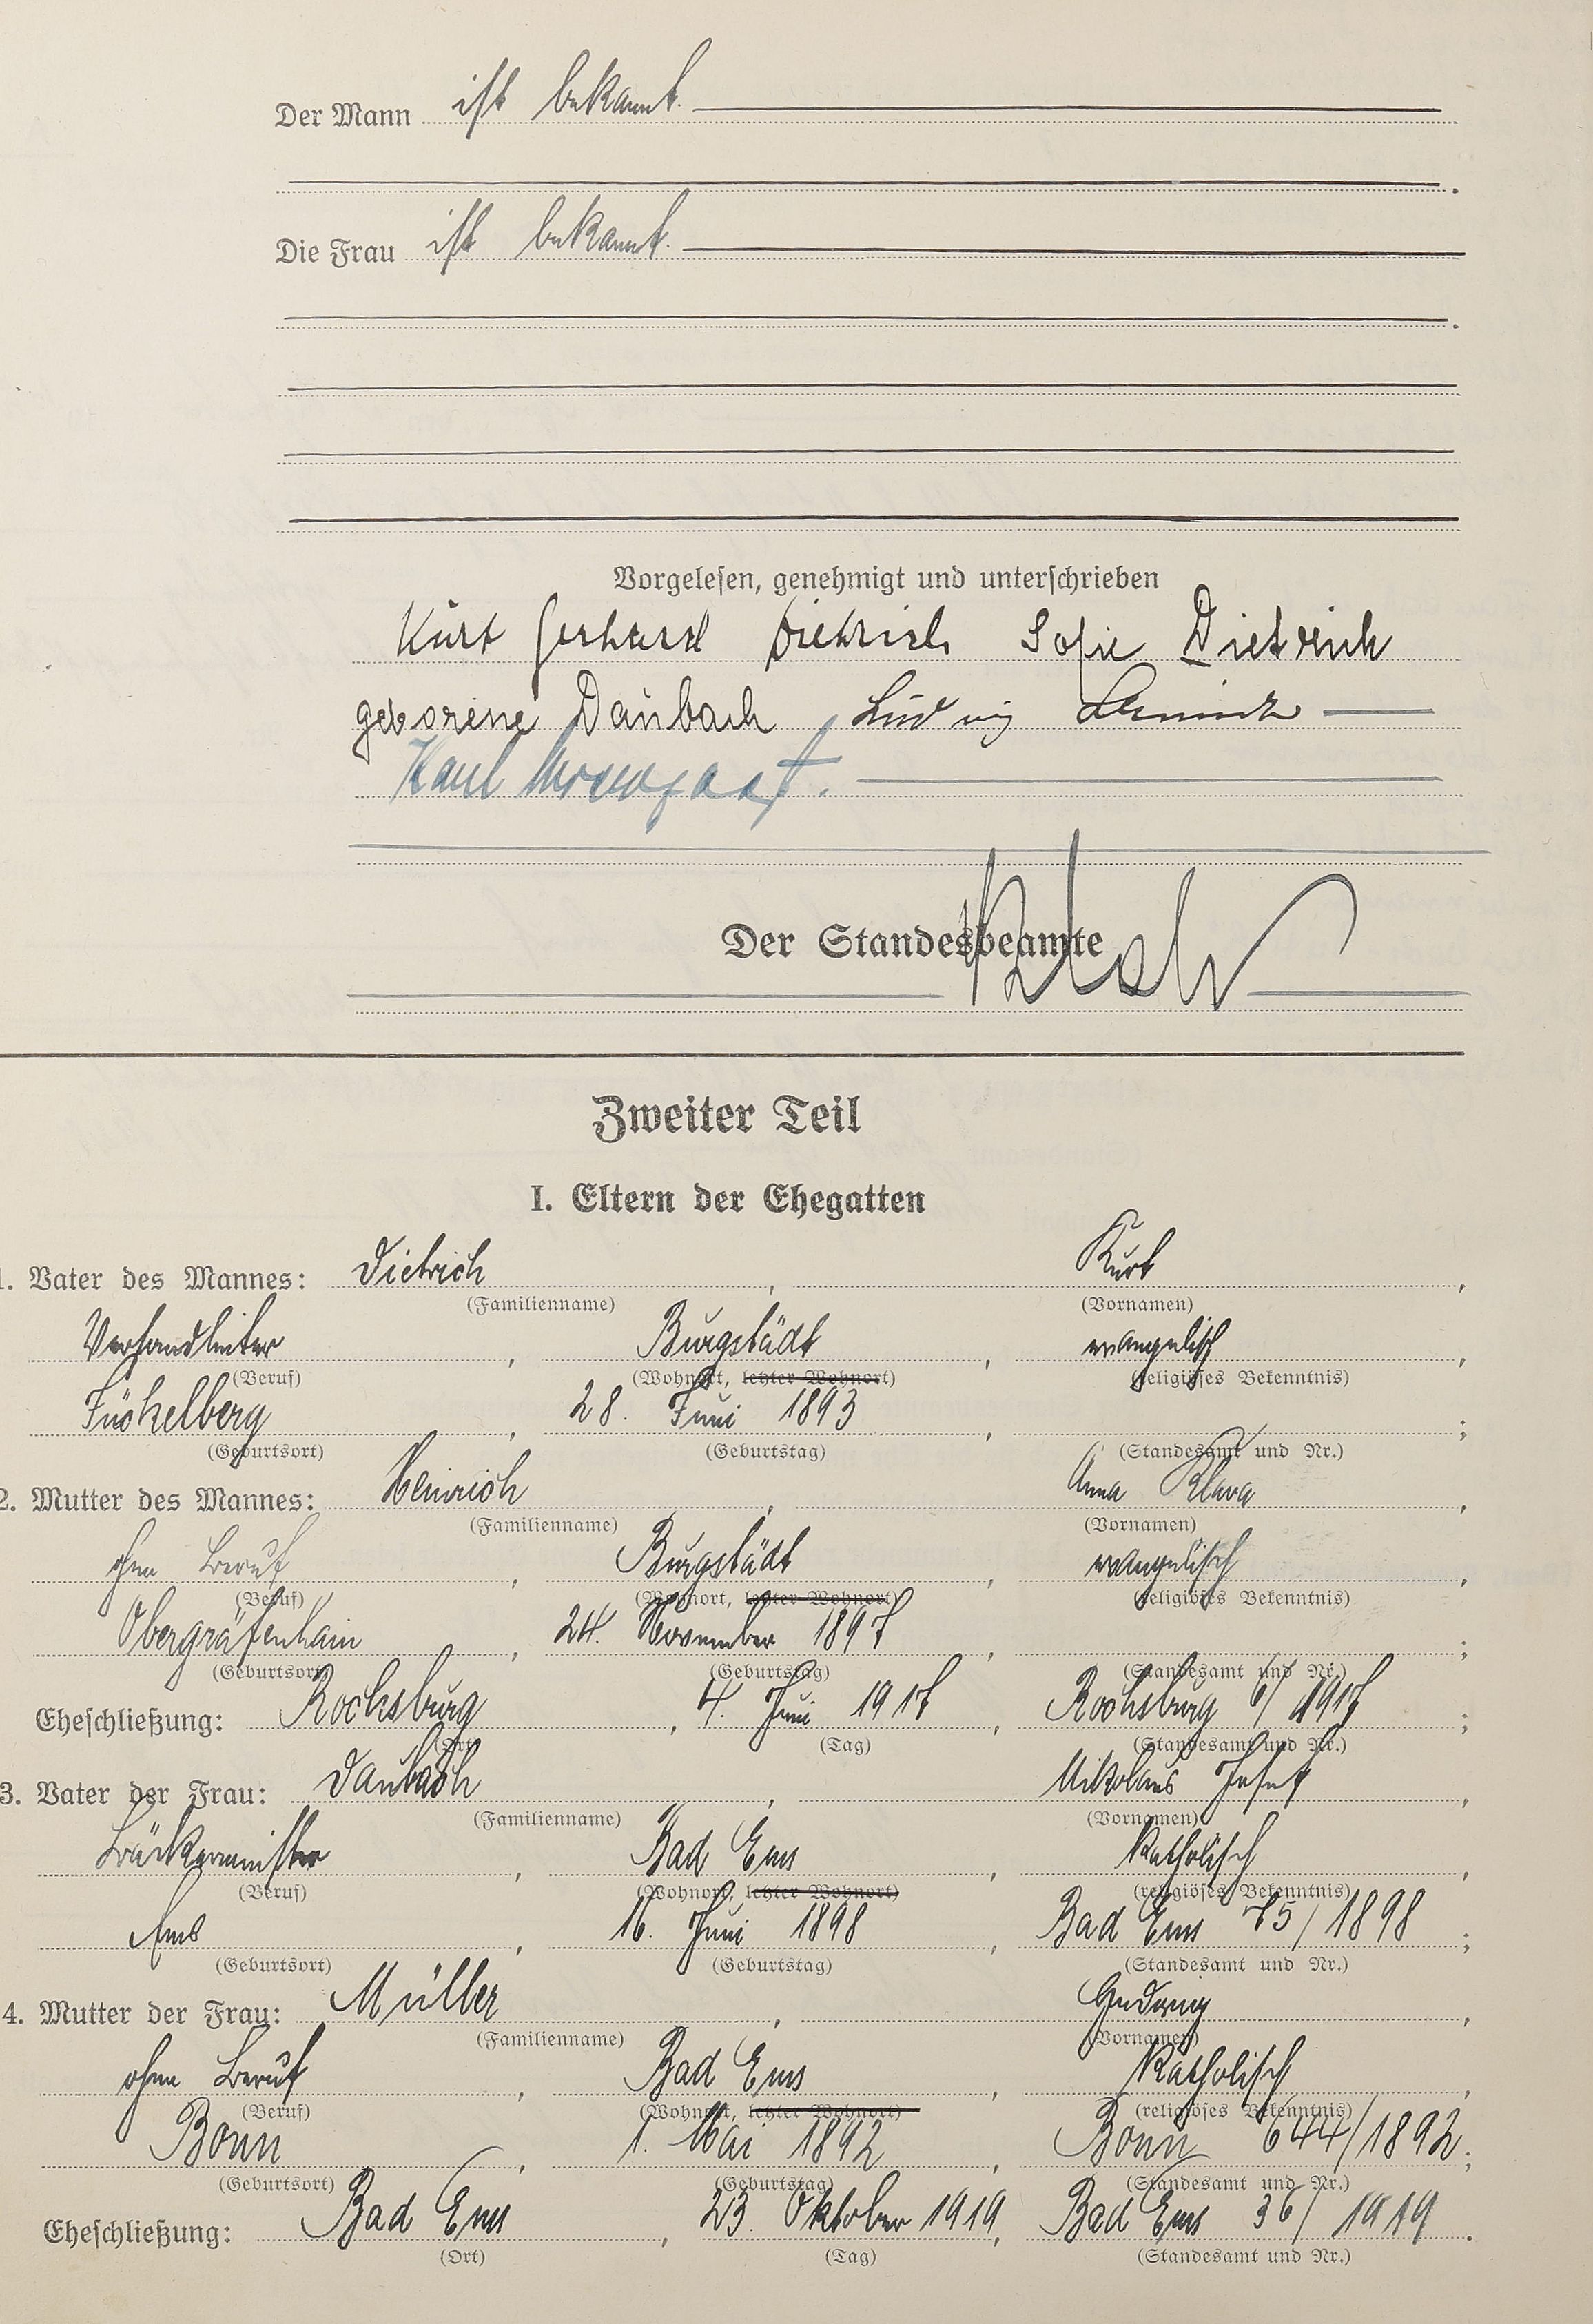 Der Mann ist bekannt.
Die Frau ist bekannt.
Vorgelesen, genehmigt und unterschrieben
Kurt Gerhard Dietrich Sofie Dietrich
geborene Daubach Ludwig
Karl
Der Standesbeamte
Zweiter Teil
I. Eltern der Ehegatten
1. Vater des Mannes: Dietrich, Kurt,
(Familienname) (Vornamen)
Versandleiter, Burgstädt, evangelisch,
(Beruf) (Wohnort, letzter Wohnort) (religiöses Bekenntnis)
28. Juni 1893, ;
(Geburtsort) (Geburtstag) (Standesamt und Nr.)
2. Mutter des Mannes: Heinrich, Anna Klara,
(Familienname) (Vornamen)
ohne Beruf, Burgstädt, evangelisch,
(Beruf) (Wohnort, letzter Wohnort) (religiöses Bekenntnis)
Obergräfenhain, 24. November 1897, ;
(Geburtsort) (Geburtstag) (Standesamt und Nr.)
Eheschließung: Rochsburg, 4. Juni 1917, Rochsburg 6/1917;
(Ort) (Tag) (Standesamt und Nr.)
3. Vater der Frau: Daubach, Nikolaus Josef,
(Familienname) (Vornamen)
Bäckermeister, Bad Ems, katholisch,
(Beruf) (Wohnort, letzter Wohnort) (religiöses Bekenntnis)
Ems, 16. Juni 1898, Bad Ems 75/1898;
(Geburtsort) (Geburtstag) (Standesamt und Nr.)
4. Mutter der Frau: Müller, Hedwig,
(Familienname) (Vornamen)
ohne Beruf, Bad Ems, katholisch,
(Beruf) (Wohnort, letzter Wohnort) (religiöses Bekenntnis)
Bonn, 1. Mai 1892, Bonn 644/1892;
(Geburtsort) (Geburtstag) (Standesamt und Nr.)
Eheschließung: Bad Ems, 23. Oktober 1919, Bad Ems 36/1919.
(Ort) (Tag) (Standesamt und Nr.)